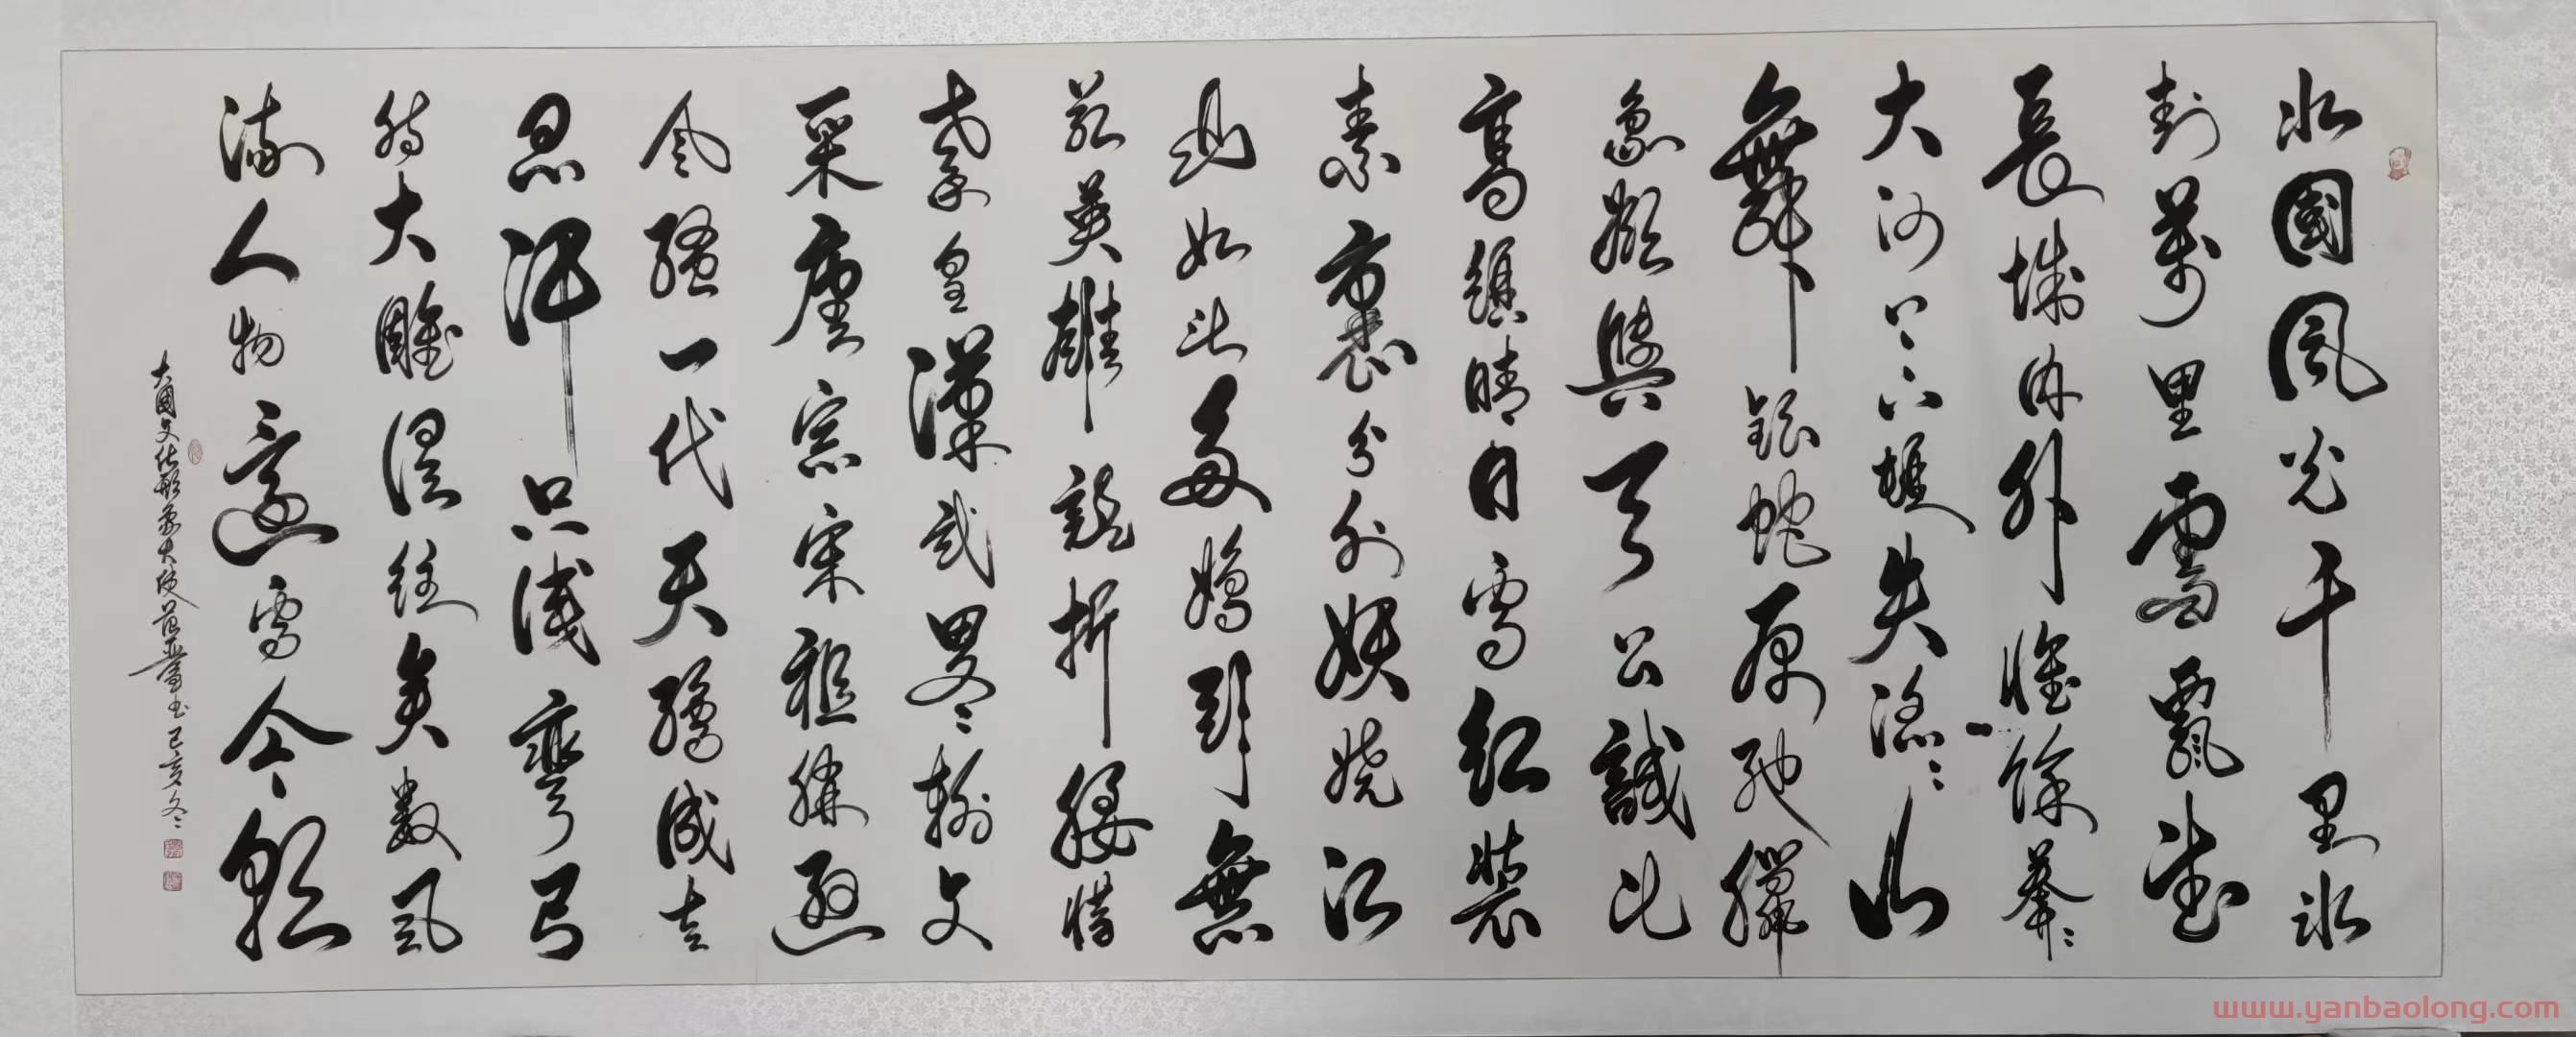 北國風光千里冰
封萬里雪飄望
長城內外惟餘莽〻
大河上下頓失滔〻山
舞銀蛇原馳臘
象欲與天公試比
高須晴日看紅裝
素裹分外妖嬈江
山如此多嬌引無
數英雄競折腰惜
秦皇漢武略輸文
采唐宗宋祖稍遜
風騷一代天驕成吉
思汗只識彎弓
射大雕俱往矣數風
流人物還看今朝
大國文化形象大使范亞書己亥冬
www.yanbaolong.com